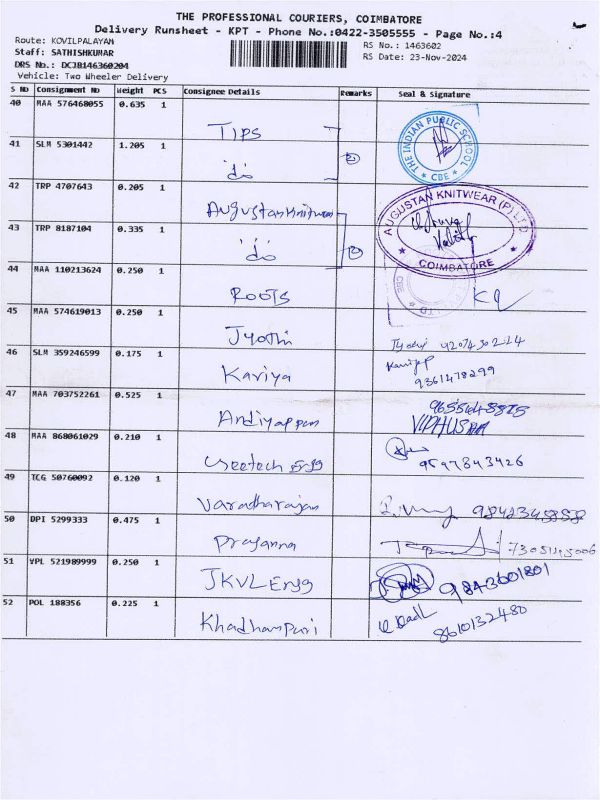 THE PROFESSIONAL COURIERS, COIMBATORE
Delivery Runsheet - KPT - Phone No.:0422-3505555 - Page No.:4
Route: KOVILPALAYAM
RS No.: 1463602
Staff: SATHISHKUMAR
RS Date: 23-Nov-2024
DRS No.: DCJB146360204
Vehicle: Two Wheeler Delivery
S No Consignment No Weight PCS Consignee Details Remarks Seal & Signature
40 MAA 576468055 0.635 1
TIPS
THE INDIAN PUBLIC SCHOOL
CBE
41 SLM 5301442 1.205 1
do
42 TRP 4707643 0.205 1
Augustan Knitwear
AUGUSTAN KNITWEAR (P) LTD
COIMBATORE
43 TRP 8187104 0.335 1
do
44 MAA 110213624 0.250 1
ROOTS
45 MAA 574619013 0.250 1
Jyothi
46 SLM 359246599 0.175 1
Kaviya
9361478299
47 MAA 703752261 0.525 1
Andiyappan
48 MAA 868061029 0.210 1
Geetech Engg
9597843426
49 TCG 50760092 0.120 1
Varadharajan
50 DPI 5299333 0.475 1
Prasanna
51 VPL 521989999 0.250 1
JKVL Engg
9843601801
52 POL 188356 0.225 1
Khadhampuri
8610132480